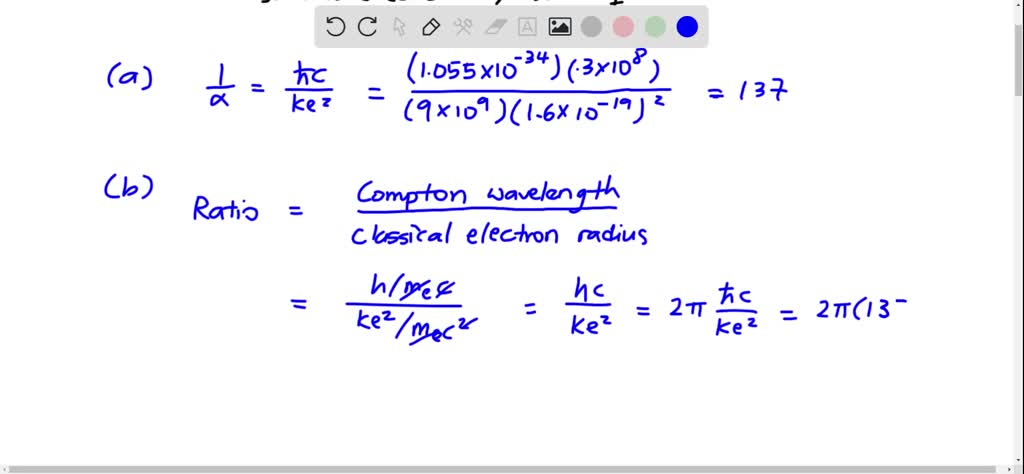 (a) 1/α = ħc/ke² = (1.055×10⁻³⁴)(.3×10⁸)/(9×10⁹)(1.6×10⁻¹⁹)² = 137
(b) Ratio = Compton wavelength/classical electron radius
= h/mₑc/ke²/mₑc² = hc/ke² = 2π ħc/ke² = 2π(13